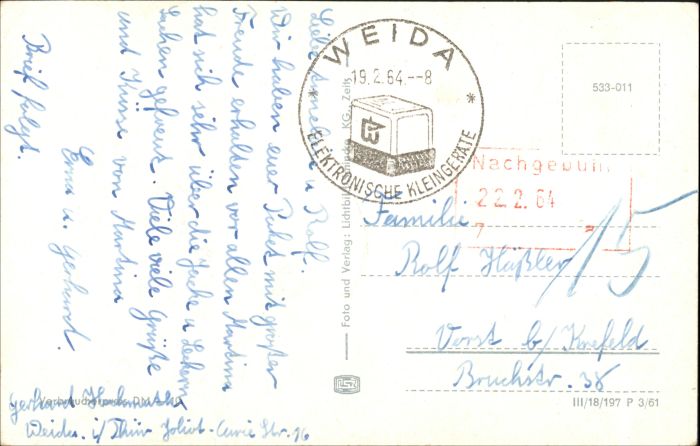 Liebe Anneliese u Rolf.
Wir haben euer Paket mit großer
Freude erhalten vor allem Martina
hat sich sehr über die Jacke u Leckern
Sachen gefreut. Viele viele Grüße
und Küsse von Martina
Erna u. Gerhard.
Brief folgt.
WEIDA
19.2.64.--8
ELEKTRONISCHE KLEINGERÄTE
533-011
Nachgebühr
22.2.64
7
15
Familie
Rolf Häßler
Vorst b/ Krefeld
Bruchstr. 38
Foto und Verlag: KG, Zeitz
III/18/197 P 3/61
Gerhard
Weida i/Thür Joliot-Curie Str. 16